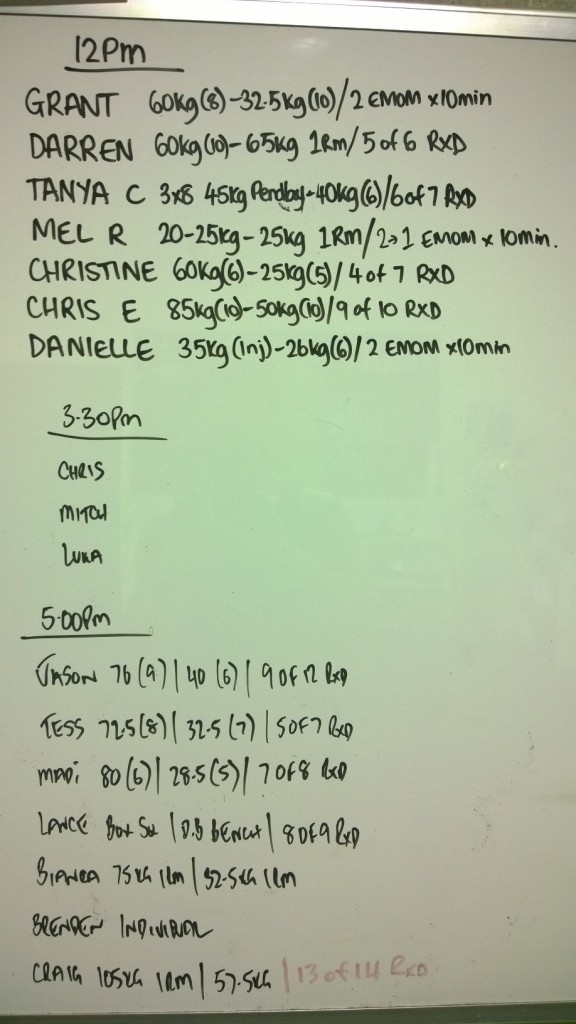 12Pm
GRANT 60kg(8)-32.5kg(10)/2 EMOM x10min
DARREN 60kg(10)-65kg 1Rm/5 of 6 RXD
TANYA C 3x8 45kg Pendlay-40kg(6)/6 of 7 RXD
MEL R 20-25kg-25kg 1Rm/2→1 EMOM x 10min.
CHRISTINE 60kg(6)-25kg(5)/4 of 7 RXD
CHRIS E 85kg(10)-50kg(10)/9 of 10 RXD
DANIELLE 35kg(Inj)-26kg(6)/2 EMOM x10min
3.30Pm
CHRIS
MITCH
LUKA
5.00Pm
JASON 76(9)|40(6)|9 OF 12 RXD
TESS 72.5(8)|32.5(7)|5 OF 7 RXD
MADi 80(6)|28.5(5)|7 OF 8 RXD
LANCE BOX SQ|D.B BENCH|8 OF 9 RXD
BIANCA 75KG 1RM|32.5KG 1RM
BRENDEN INDIVIDUAL
CRAIG 105KG 1RM|57.5KG|13 of 14 RXD